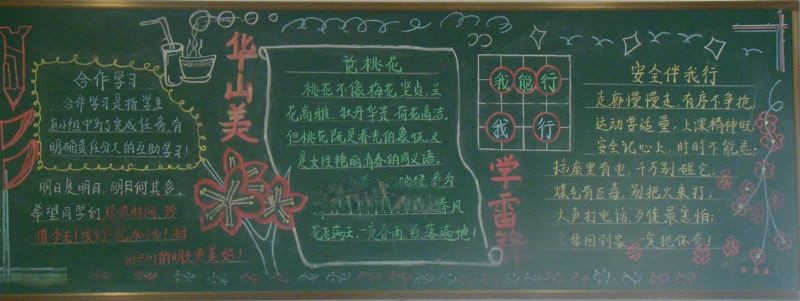 合作学习
合作学习是指学生
在小组中为了完成任务,有
明确责任分工的互助学习!
明日复明日,明日何其多,
希望同学们珍惜时间,珍
惜今天!我们一起加油!相
们的明天更美好!
华山美
说桃花
桃花不像梅花坚贞,兰
花高雅,牡丹华贵,荷花高洁.
但桃花既是春光的象征,又
是女性艳丽青春的同义语。
春风
花飞满天,一夜春雨,红落遍地!
我能行
我 行
学雷锋
安全伴我行
走廊慢慢走,有序不争抢;
运动要适量,上课精神旺;
安全记心上,时时不能忘;
插座里有电,千万别碰它;
煤气有巨毒,别把火来打;
大声打电话,歹徒最害怕;